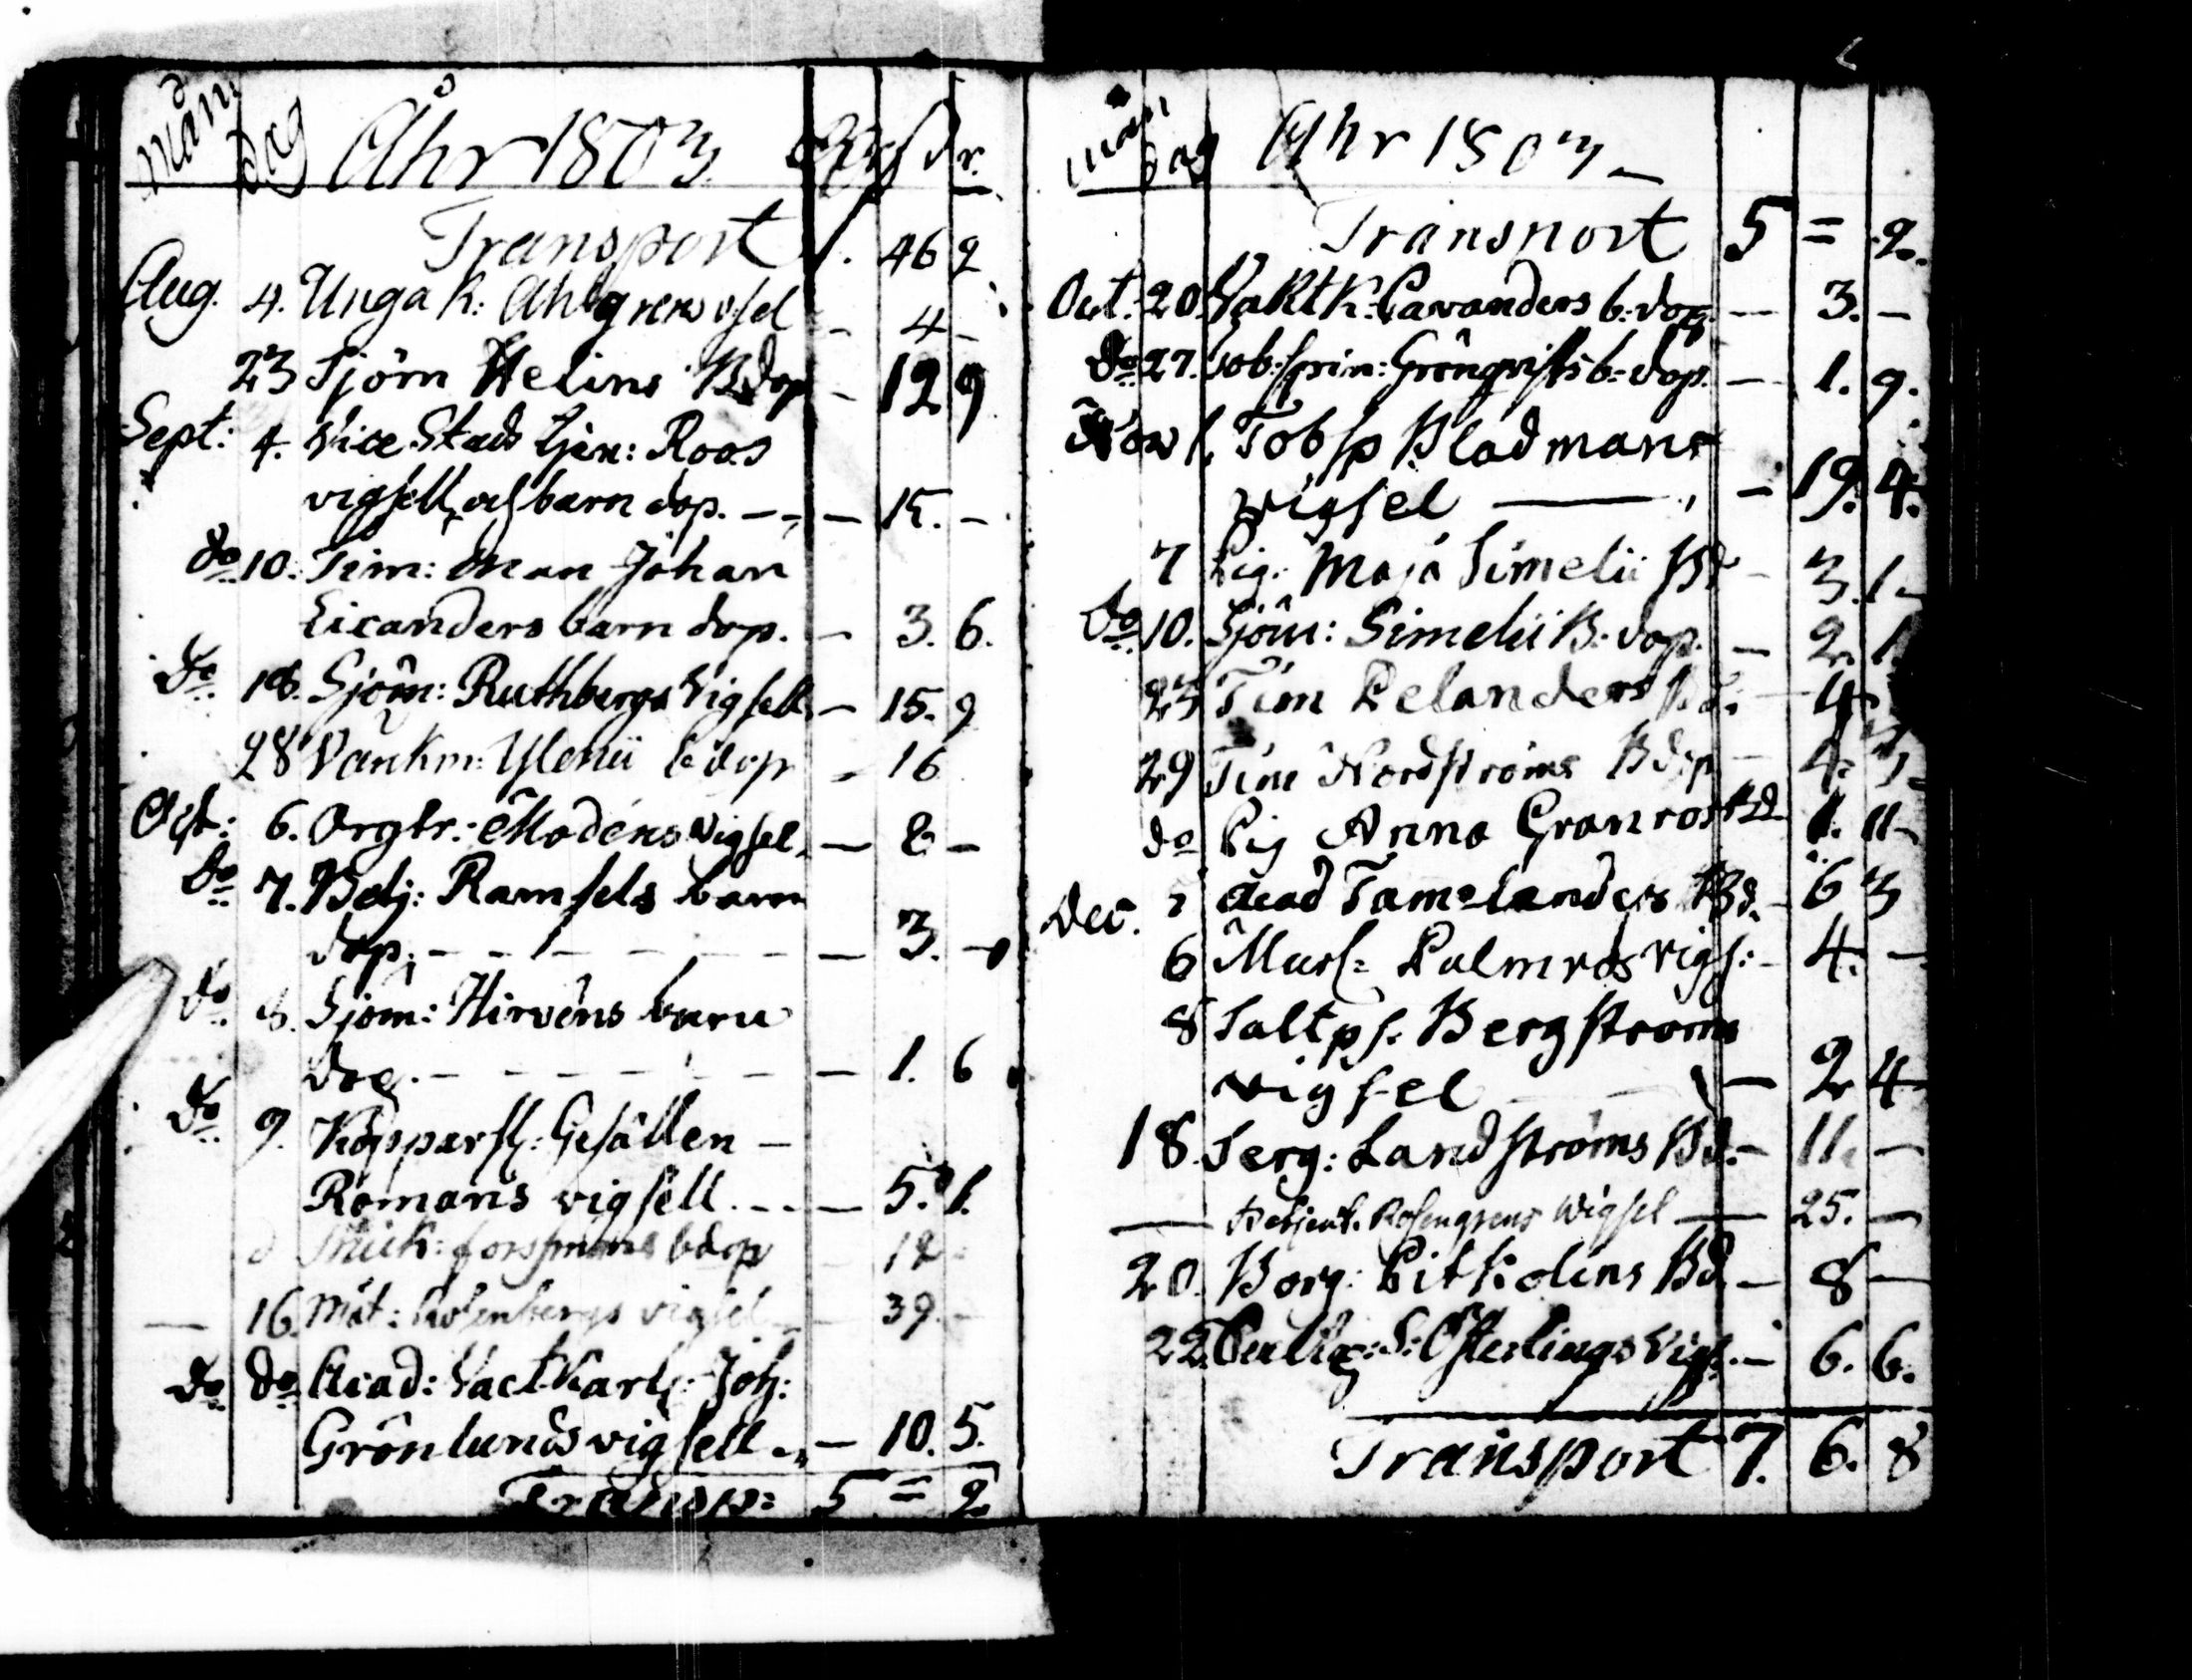 Mån dag Åhr 1803 Rd s r.
Transport 1. 46 2
Aug. 4. Unga K: Ahlgrens vsel - 4 -
23 Sjöm Helins Bdop - 12 9
Sept: 4. Vice Stads tjen: Roos
vigsell och barn dop. - - - 15. -
do 10. Tim: man Johan
Licanders barn dop. - 3. 6.
do 18. Sjöm: Ruthbergs vigsell - 15. 9
28 Vankm: Ylenii bdop - 16
Oct: 6. Orgtr: Modens vigsel. - 8 -
do 7. Betj: Ramsels barn
dop. - - - - - 3. -
do 8. Sjöm: Hirvens barn
dop. - - - - - 1. 6
do 9. Kopparsl: Gesällen -
Romans vigsell. - - - 5. 1.
Forssmans bdop 12 -
— 16. Mat: Rosenbergs vigsel - 39. -
do do Acad: Vacktkarl: Joh:
Grönlunds vigsell - - 10. 5.
Transp: 5 = 2
Mån dag Ahr 1803 -
Transport 5 = 2.
Oct. 20. Vaktk: Lavanders b: dop. - 3. -
do 27. Tob: spin: Grönqvists b: dop. - 1. 9.
Nov 1. Tobsp Bladmans
wigsel —— - 19. 4.
7 Pig: Maja Simelii Bd - 3. 1 -
do 10. Sjöm: Simelii B: dop. - 2. 1
23 Tim Pelanders - 4
29 Tim Nordströms Bdop - 4.
do Pig Anna Granros Bd 1. 11 -
Dec. 2 Acad Tamelanders Bd. - 6 3
6 Murs: Palmros vigs: - 4. -
8 Saltps: Bergstroms
vigsel - 2 4
18. Serg: Landströms Bd. - 11. -
— Betjent. Rosengrens Wigsel — 25. -
20. Borg: Pitkolins Bd. - 8 -
22. S: Österlings vigs. - 6. 6.
Transport 7. 6. 8